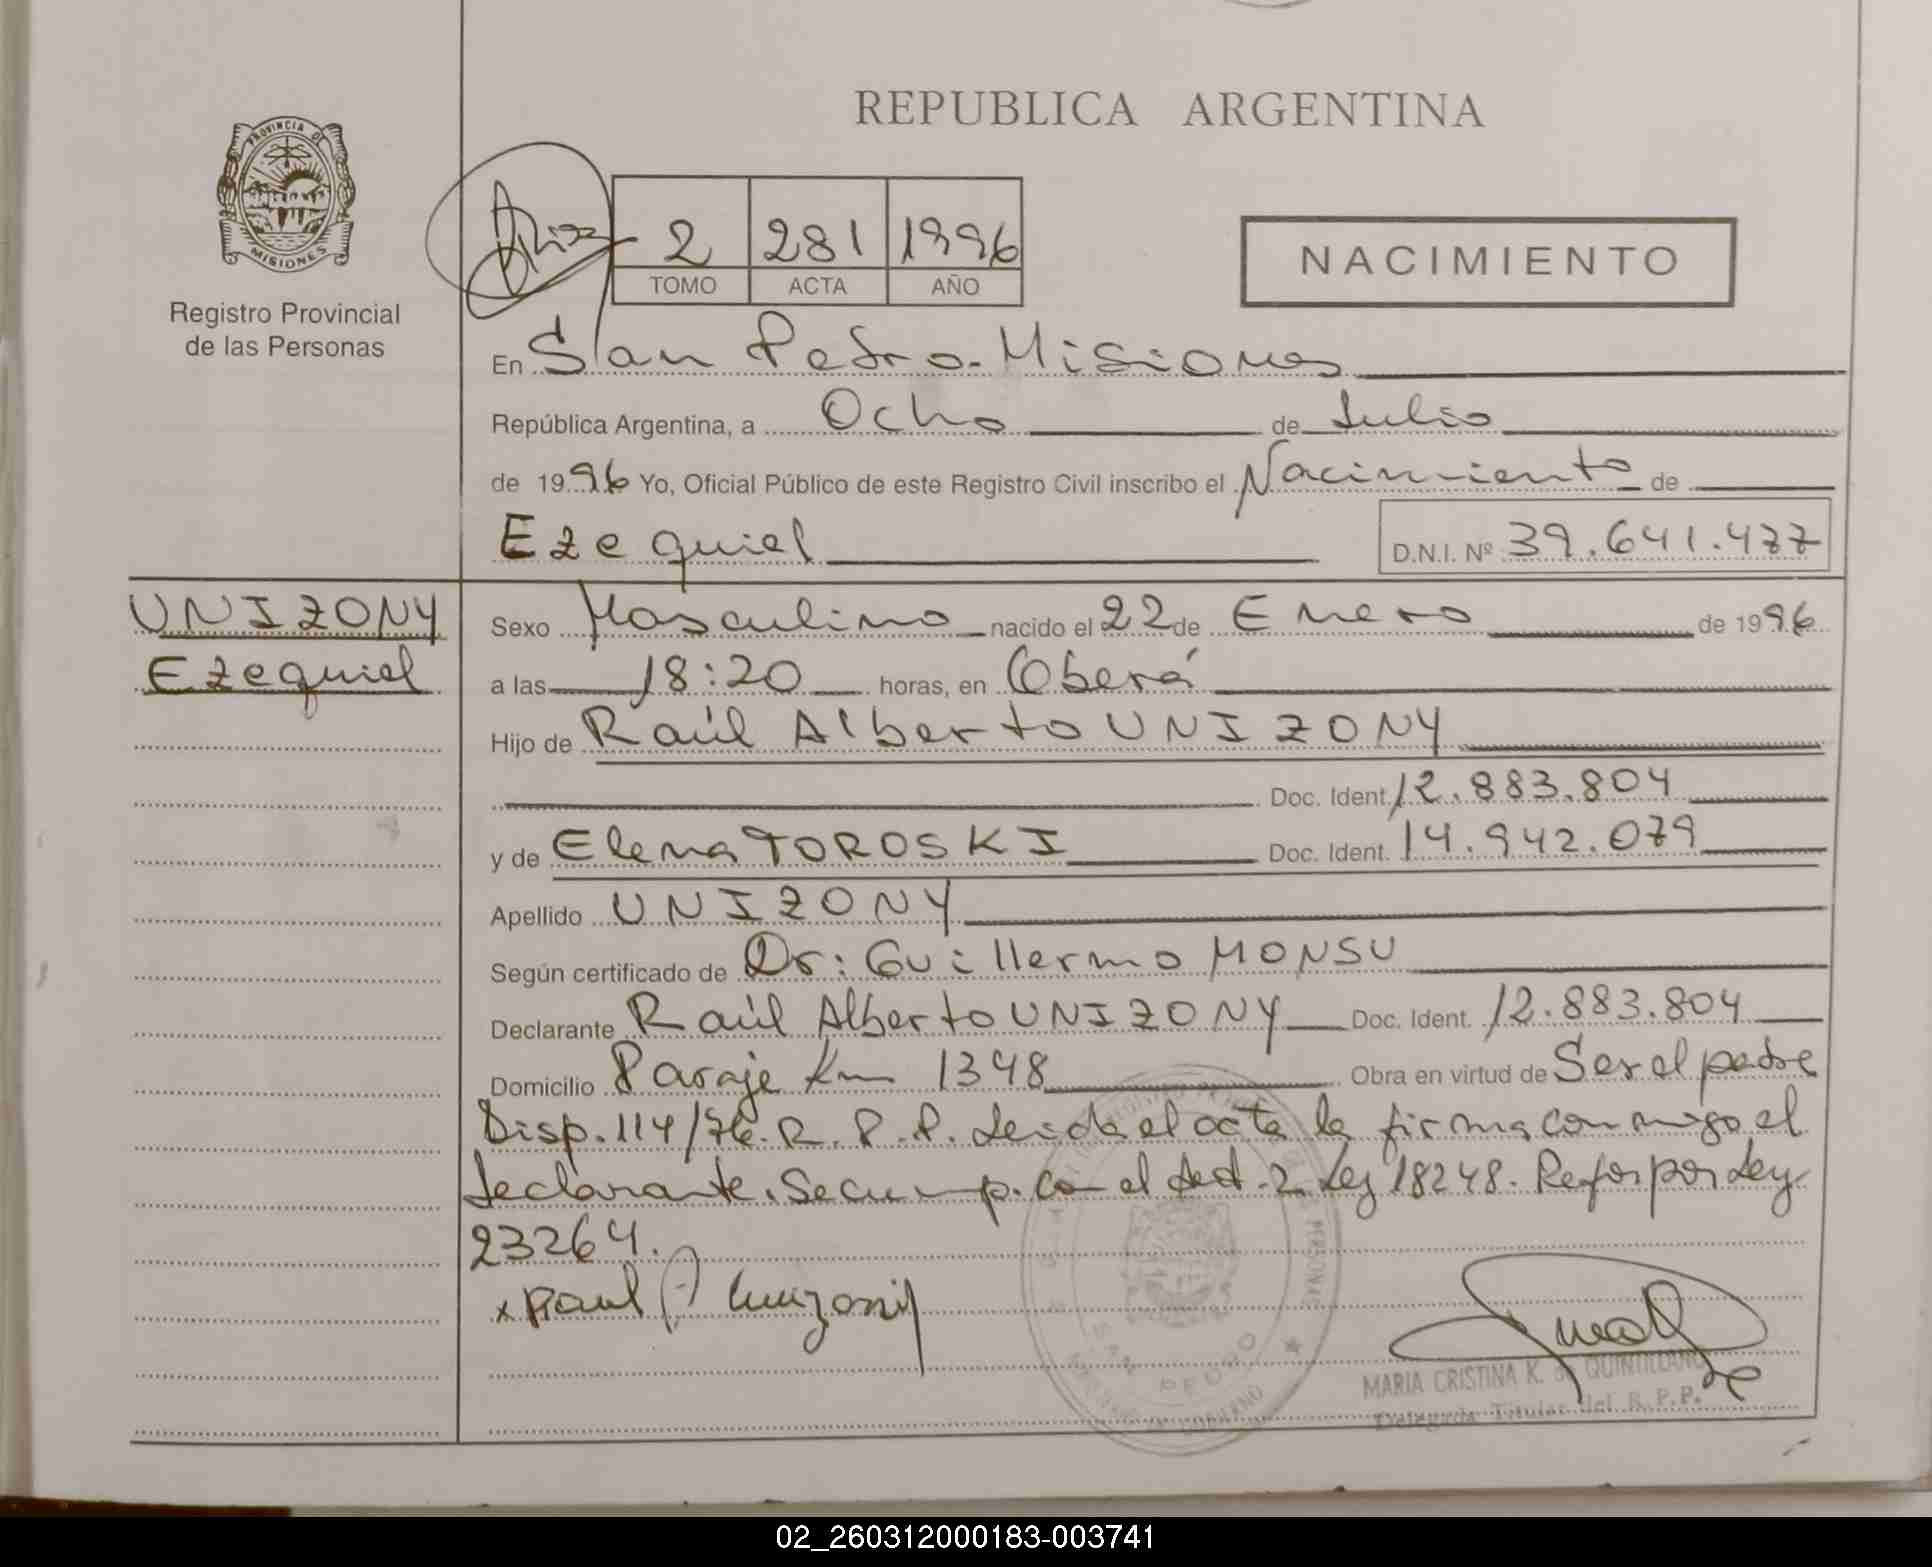 REPUBLICA ARGENTINA
PROVINCIA DE
MISIONES
Registro Provincial
de las Personas
2 281 1996
TOMO ACTA AÑO
NACIMIENTO
En San Pedro - Misiones
República Argentina, a Ocho de Julio
de 1996 Yo, Oficial Público de este Registro Civil inscribo el Nacimiento de
Ezequiel D.N.I. Nº 39.641.477
UNIZONY
Ezequiel
Sexo Masculino nacido el 22 de Enero de 1996
a las 18:20 horas, en Oberá
Hijo de Raúl Alberto UNIZONY
Doc. Ident. 12.883.804
y de Elena TOROSKI Doc. Ident. 14.942.079
Apellido UNIZONY
Según certificado de Dr: Guillermo MONSU
Declarante Raúl Alberto UNIZONY Doc. Ident. 12.883.804
Domicilio Paraje Km 1348 Obra en virtud de Ser el padre
Disp. 114/76. R. P. P. Leida el acta la firma conmigo el
declarante. Se cump. con el Art. 2 Ley 18248. Refor por Ley
23264.
x Raul A Unizony
SAN PEDRO
MARIA CRISTINA K. de QUINTILLANO
Delegada Titular del R.P.P.
02_260312000183-003741